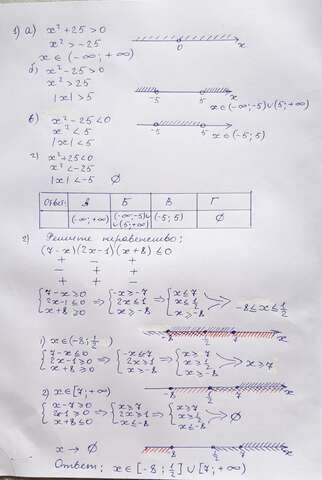 1) а) x²+25>0
x²>-25
x∈(-∞;+∞)
0 x
б) x²-25>0
x²>25
|x|>5
-5 5 x
x∈(-∞;-5)∪(5;+∞)
в) x²-25<0
x²<5
|x|<5
-5 5 x
x∈(-5;5)
г) x²+25<0
x²<-25
|x|<-5 ∅
Ответ: А Б В Г
(-∞;+∞) (-∞;-5)∪∪(5;+∞) (-5;5) ∅
2) Решите неравенство:
(7-x)(2x-1)(x+8)≤0
+ - +
- + +
+ + -
{7-x≥0 2x-1≤0 x+8≥0 ⇒ {-x≥-7 2x≤1 x≥-8 ⇒ {x≤7 x≤½ x≥-8 -8≤x≤½
-8 ½ 7 x
1) x∈(-8;½)
{7-x≤0 2x-1≥0 x+8≥0 ⇒ {-x≤7 2x≥1 x≥-8 ⇒ {x≥7 x≥½ x≥-8 x≥7
-8 ½ 7 x
2) x∈[7;+∞)
{x-7≥0 2x-1≥0 x+8≤0 ⇒ {x≥7 2x≥1 x≤-8 ⇒ {x≥7 x≥½ x≤-8 ∅
x → ∅
-8 ½ 7 x
Ответ: x∈[-8;½]∪[7;+∞)